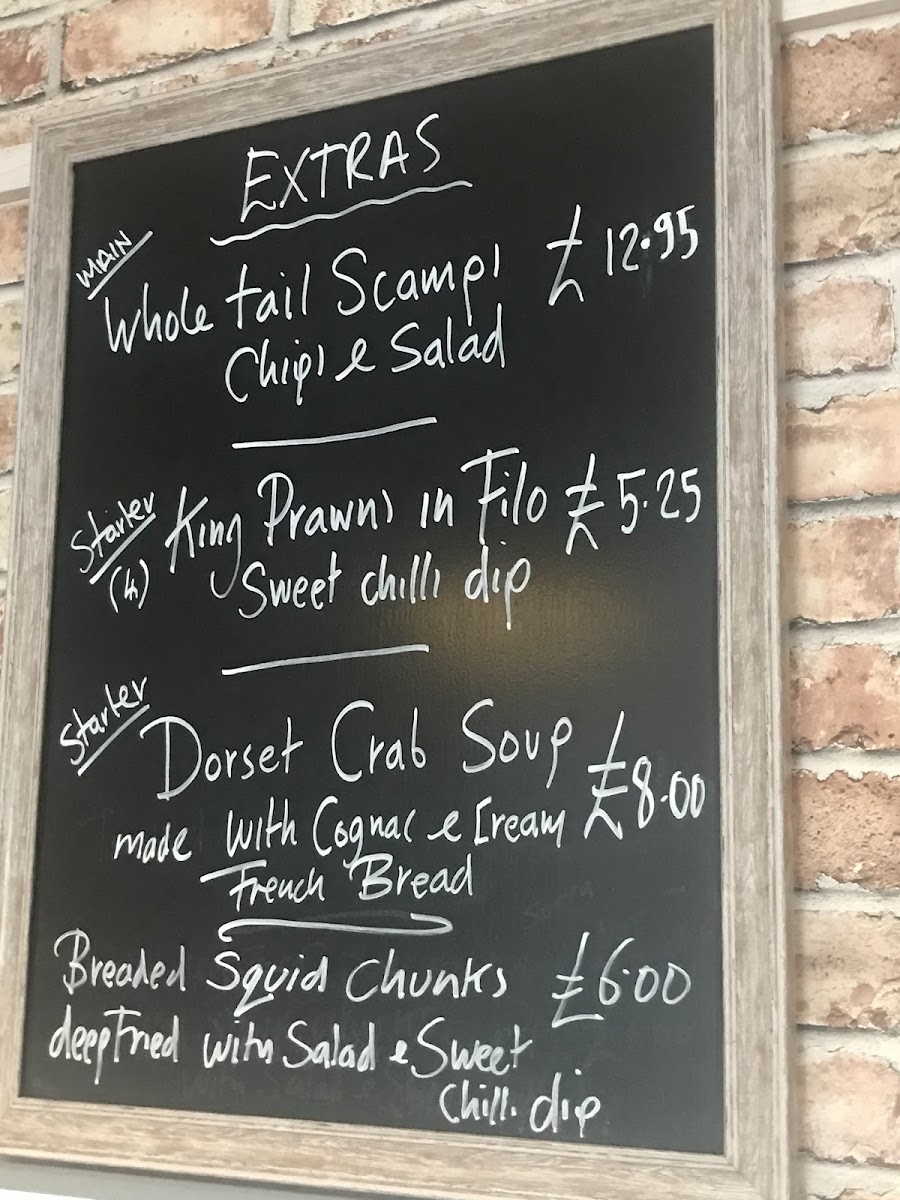 EXTRAS
MAIN
Whole tail Scampi £12.95
Chips & Salad
Starter
(4)
King Prawns in Filo £5.25
Sweet chilli dip
Starter
Dorset Crab Soup
made with Cognac & Cream £8.00
French Bread
Breaded Squid Chunks £6.00
deep Fried with Salad & Sweet
Chilli dip